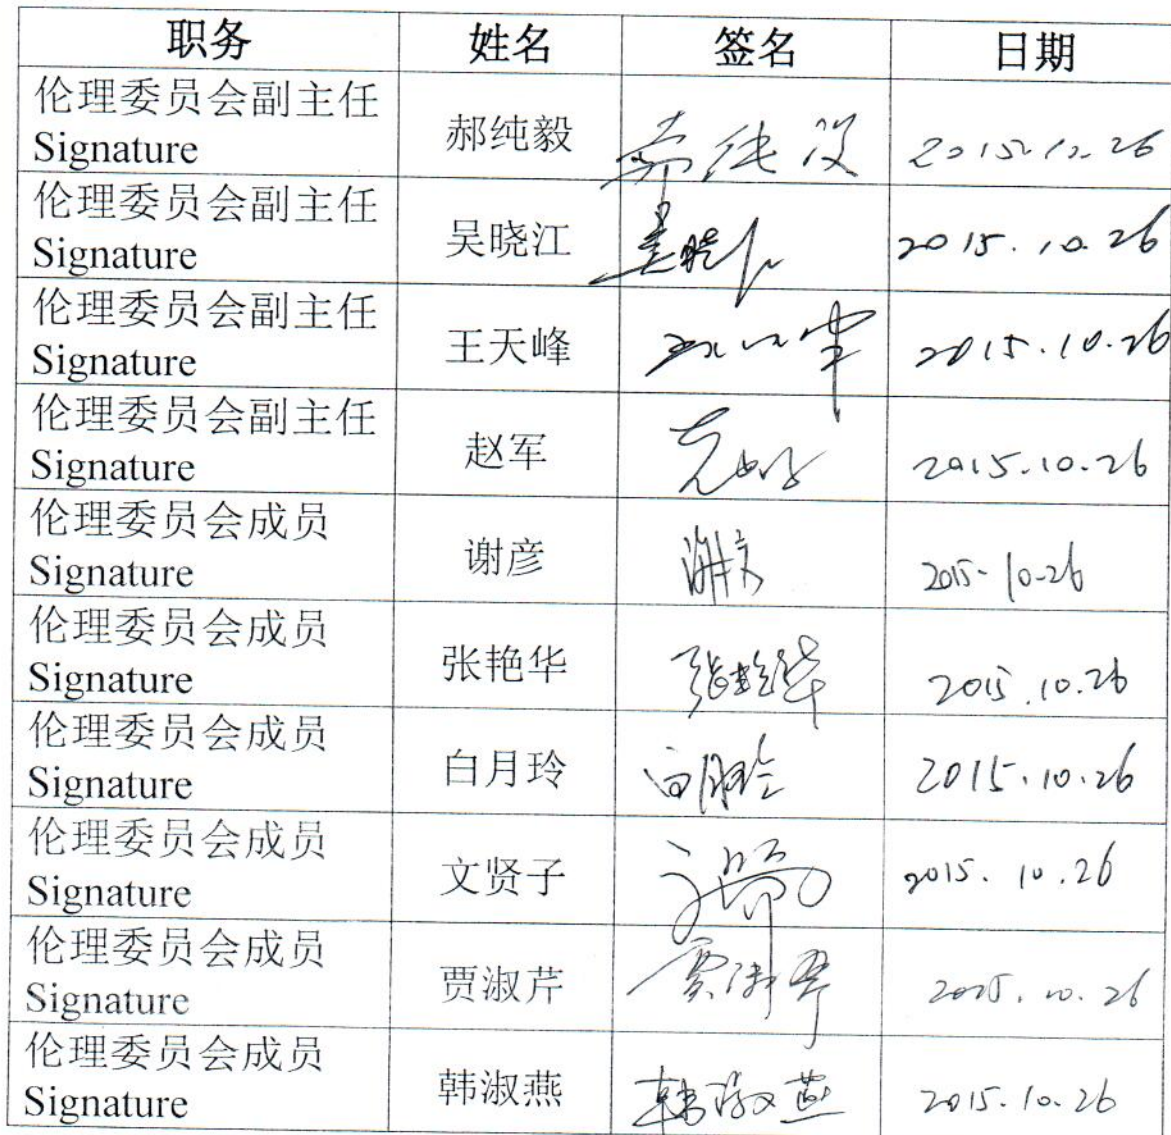 职务 姓名 签名 日期
伦理委员会副主任
Signature 郝纯毅 郝纯毅 2015.10.26
伦理委员会副主任
Signature 吴晓江 吴晓江 2015.10.26
伦理委员会副主任
Signature 王天峰 2015.10.26
伦理委员会副主任
Signature 赵军 2015.10.26
伦理委员会成员
Signature 谢彦 谢彦 2015-10-26
伦理委员会成员
Signature 张艳华 张艳华 2015.10.26
伦理委员会成员
Signature 白月玲 白月玲 2015.10.26
伦理委员会成员
Signature 文贤子 2015.10.26
伦理委员会成员
Signature 贾淑芹 贾淑芹 2015.10.26
伦理委员会成员
Signature 韩淑燕 韩淑燕 2015.10.26